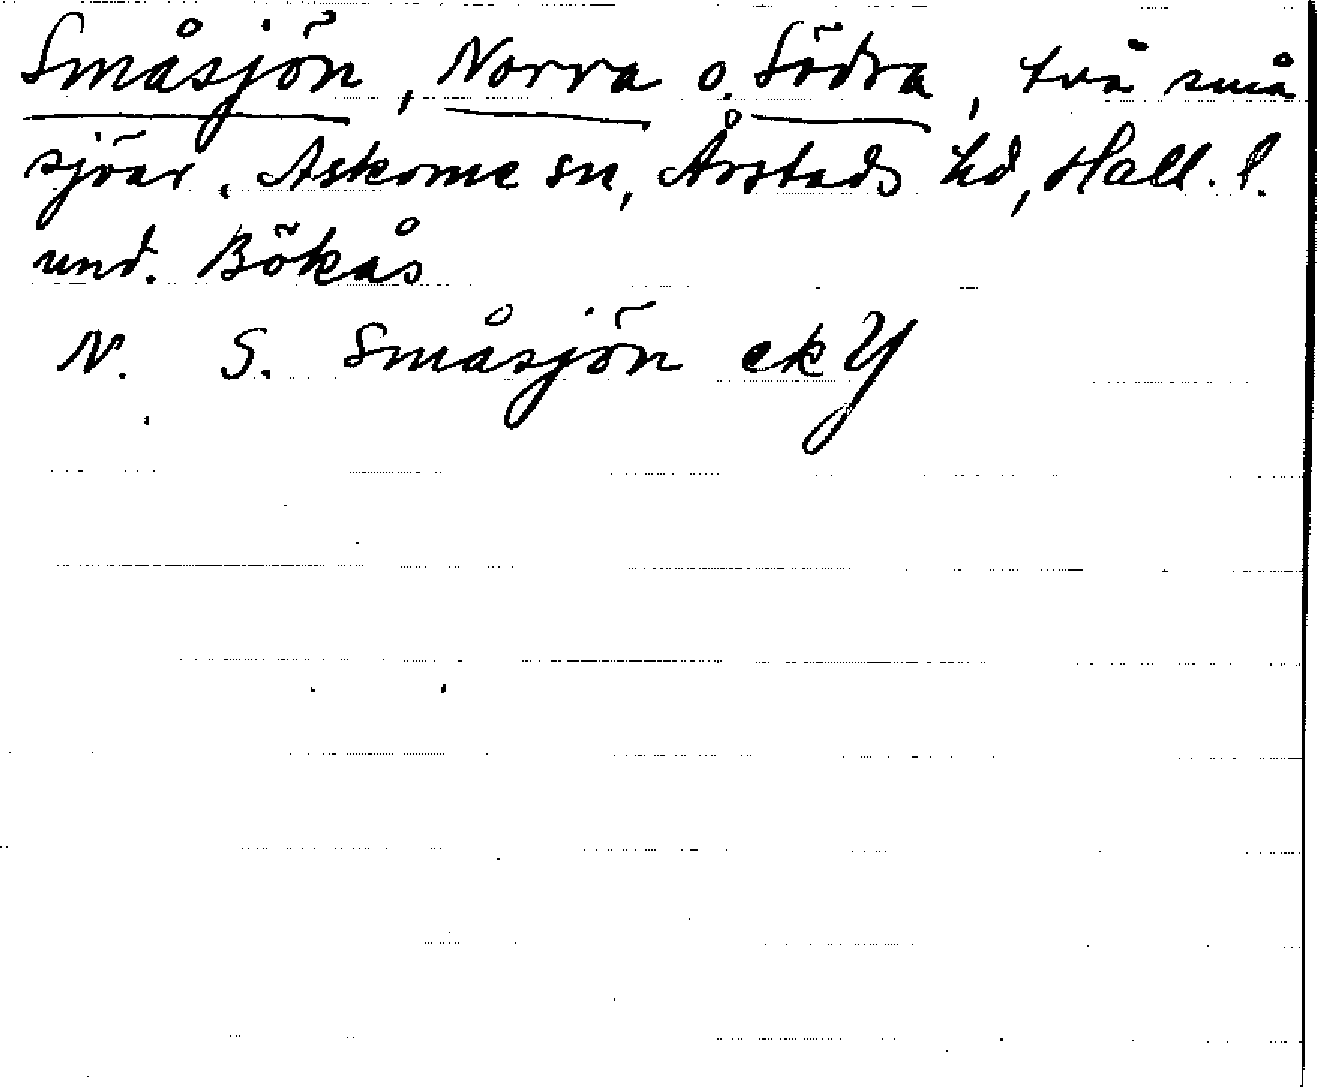 Småsjön, Norra o. Södra, två små
sjöar. Askome sn, Årstads hd, Hall. l.
und. Bökås
N. S. Småsjön ek Y